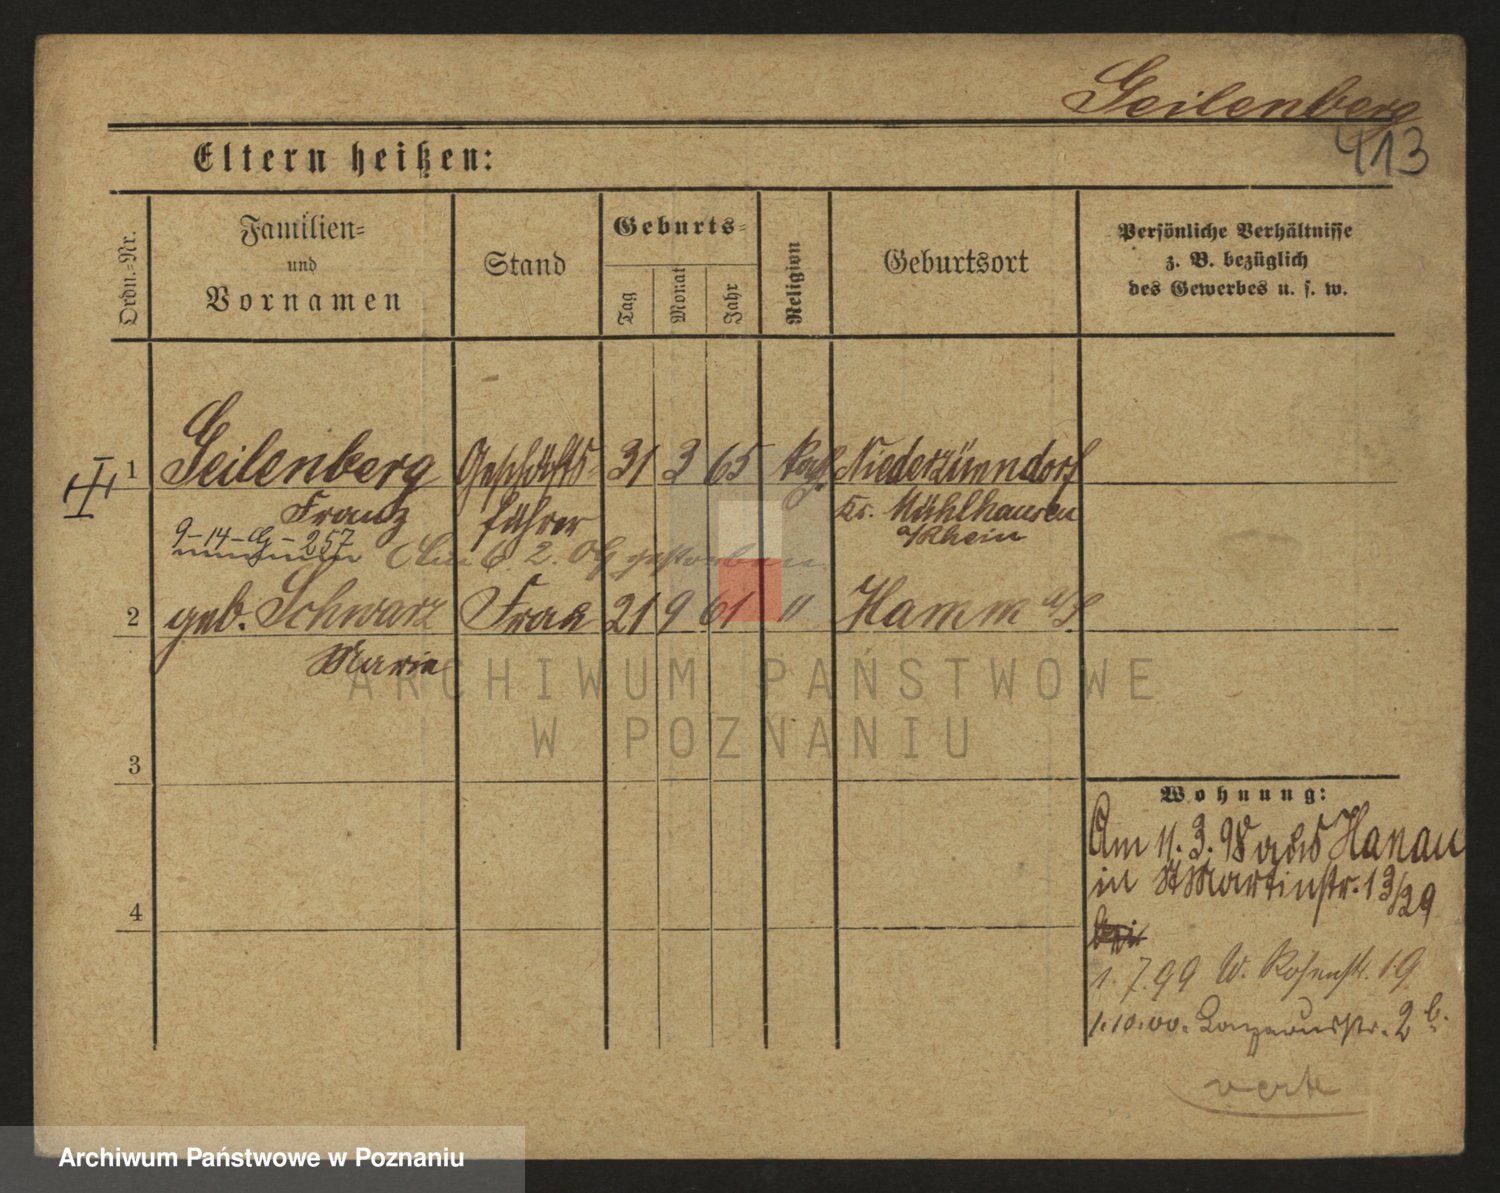 Geilenberg
413
Eltern heißen:
Ordn.-Nr.
Familien-
und
Vornamen
Stand
Geburts-
Tag
Monat
Jahr
Religion
Geburtsort
Persönliche Verhältnisse
z. B. bezüglich
des Gewerbes u. s. w.
1 Geilenberg Geschäfts- 31 3 65 kath. Niederzündorf
Franz führer Kr. Mühlhausen
a/Rhein
9-14-G-257
Am 6. 2. gestorben
2 geb. Schwarz Frau 21 9 61 " Hamm
Marie
ARCHIWUM PAŃSTWOWE
W POZNANIU
3
4
Wohnung:
Am 11. 3. 98 aus Hanau
in St Martinstr. 13/29
bei
1. 7. 99 W. Rosenstr. 19
1.10.00. Lazarusstr. 2 b.
verte
Archiwum Państwowe w Poznaniu